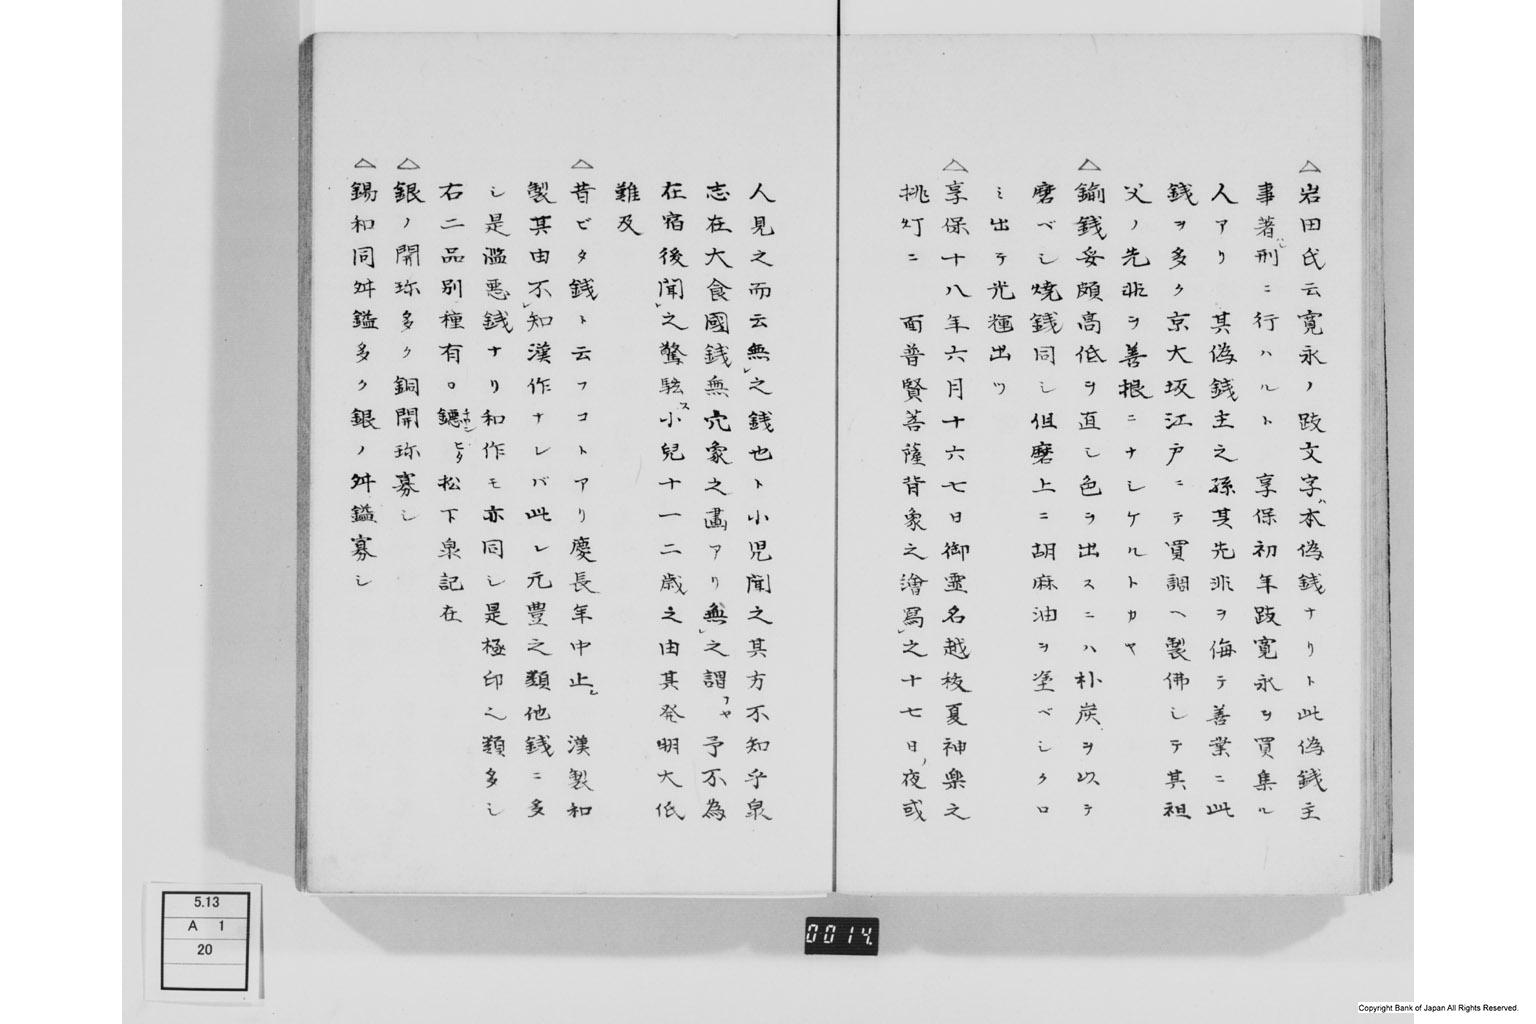 △岩田氏云寛永ノ跂文字ハ本偽銭ナリト此偽銭主
事著ハレ刑ニ行ハルト 享保初年跂寛永ヲ買集ル
人アリ 其偽銭主之孫其先非ヲ侮テ善業ニ此
銭ヲ多ク京大坂江戸ニテ買調ヘ製佛シテ其祖
父ノ先非ヲ善根ニナシケルトカヤ
△鍮銭妥頗高低ヲ直シ色ヲ出スニハ朴炭ヲ以テ
磨ベシ焼銭同シ但磨上ニ胡麻油ヲ塗ベシクロ
ミ出テ光輝出ツ
△享保十八年六月十六七日御霊名越祓夏神樂之
挑灯ニ 面普賢菩薩背象之繪寫レ之十七日ノ夜或
人見之而云無レ之銭也ト小児聞之其方不知乎泉
志在大食國銭無穴象之畵アリ無レ之謂フヤ予不為
在宿後聞レ之驚駭ス小兒十一二歳之由其発明大低
難及
△昔ビタ銭ト云フコトアリ慶長年中止ム 漢製和
製其由不レ知漢作ナレバ此レ元豊之類他銭ニ多
シ是濫悪銭ナリ和作モ亦同シ是極印之類多シ
右二品別種有ロ 松下泉記在
△銀ノ開珎多ク銅開珎寡シ
△錫和同舛鎰多ク銀ノ舛鎰寡シ
5.13
A 1
20
0014.
Copyright Bank of Japan All Rights Reserved.